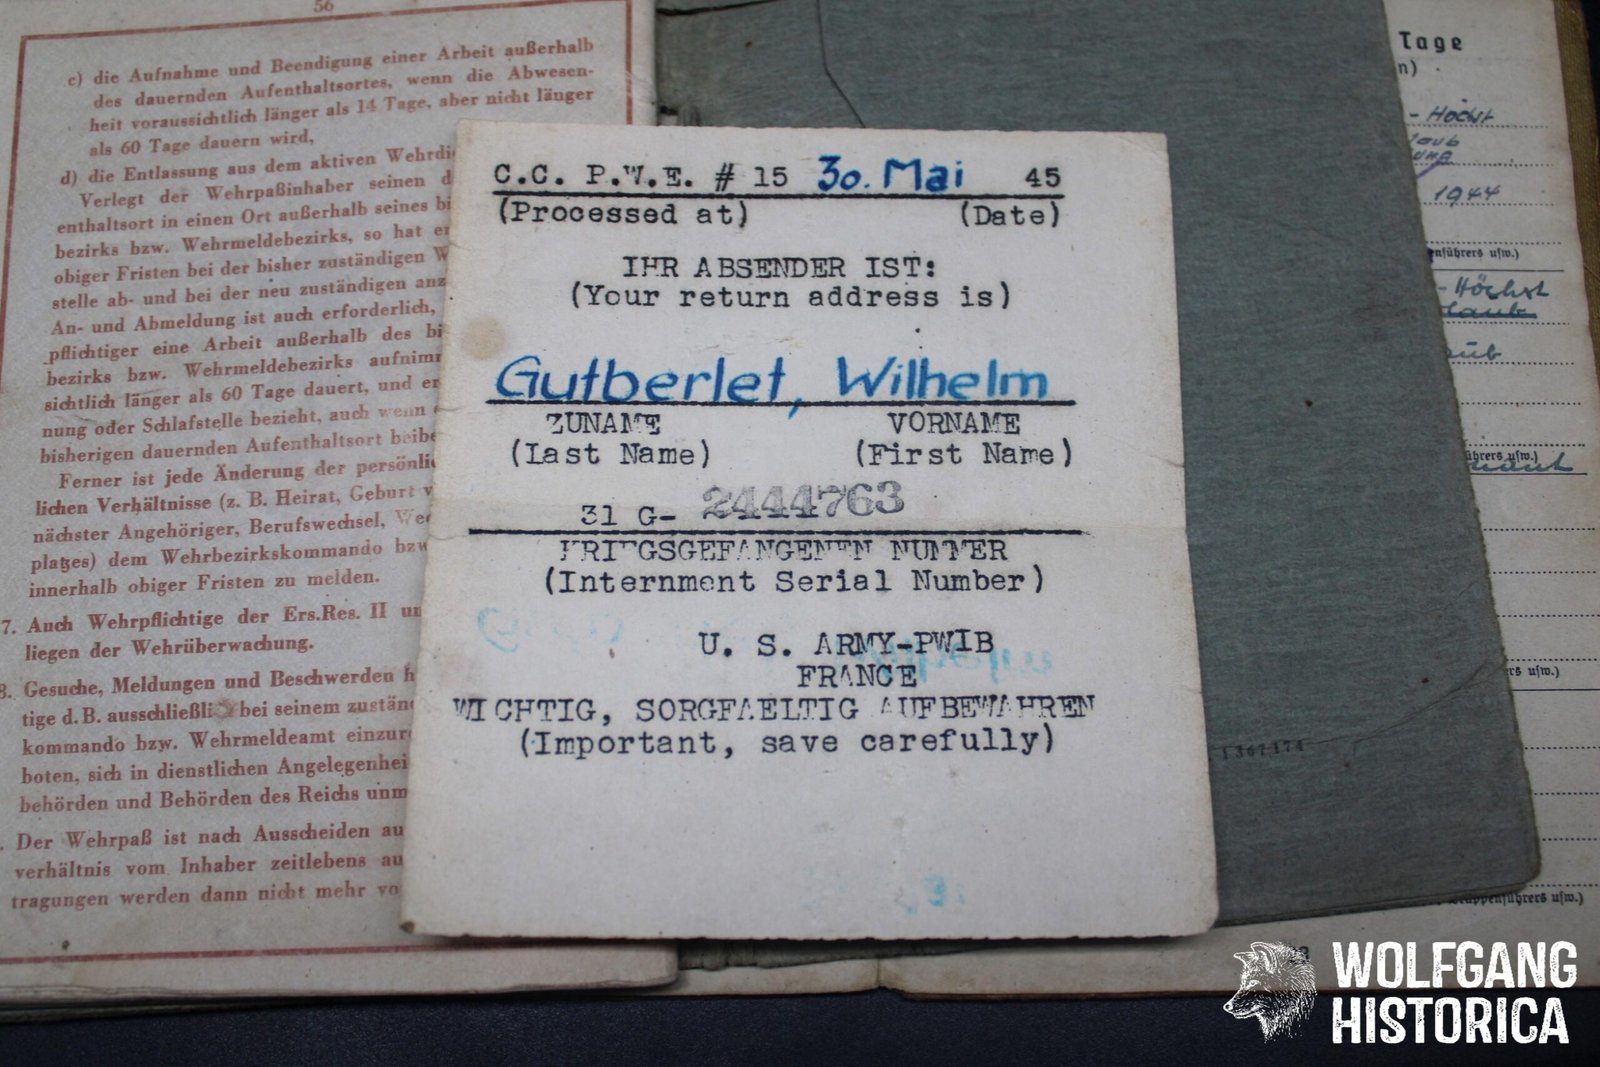 56
c) die Aufnahme und Beendigung einer Arbeit außerhalb
des dauernden Aufenthaltsortes, wenn die Abwesen-
heit voraussichtlich länger als 14 Tage, aber nicht länger
als 60 Tage dauern wird,
d) die Entlassung aus dem aktiven Wehrdi
Verlegt der Wehrpaßinhaber seinen d
enthaltsort in einen Ort außerhalb seines bi
bezirks bzw. Wehrmeldebezirks, so hat er
obiger Fristen bei der bisher zuständigen W
stelle ab- und bei der neu zuständigen anz
An- und Abmeldung ist auch erforderlich,
pflichtiger eine Arbeit außerhalb des bi
bezirks bzw. Wehrmeldebezirks aufnimm
sichtlich länger als 60 Tage dauert, und er
nung oder Schlafstelle bezieht, auch wenn
bisherigen dauernden Aufenthaltsort beibe
Ferner ist jede Änderung der persönlic
lichen Verhältnisse (z. B. Heirat, Geburt v
nächster Angehöriger, Berufswechsel, Wec
platzes) dem Wehrbezirkskommando bzw
innerhalb obiger Fristen zu melden.
7. Auch Wehrpflichtige der Ers.Res. II un
liegen der Wehrüberwachung.
8. Gesuche, Meldungen und Beschwerden h
tige d.B. ausschließlich bei seinem zustän
kommando bzw. Wehrmeldeamt einzure
boten, sich in dienstlichen Angelegenhei
behörden und Behörden des Reichs unm
Der Wehrpaß ist nach Ausscheiden au
verhältnis vom Inhaber zeitlebens au
tragungen werden dann nicht mehr vo
C.C. P.W.E. # 15 30. Mai 45
(Processed at) (Date)
IHR ABSENDER IST:
(Your return address is)
Gutberlet, Wilhelm
ZUNAME VORNAME
(Last Name) (First Name)
31 G- 2444763
KRIEGSGEFANGENEN NUMMER
(Internment Serial Number)
U. S. ARMY-PWIB
FRANCE
WICHTIG, SORGFAELTIG AUFBEWAHREN
(Important, save carefully)
Tage
n)
- Höchst
laub
1944
enführers usw.)
- Höchst
laub
aub
ührers usw.)
1367174
rs usw.)
Truppenführers usw.)
WOLFGANG
HISTORICA